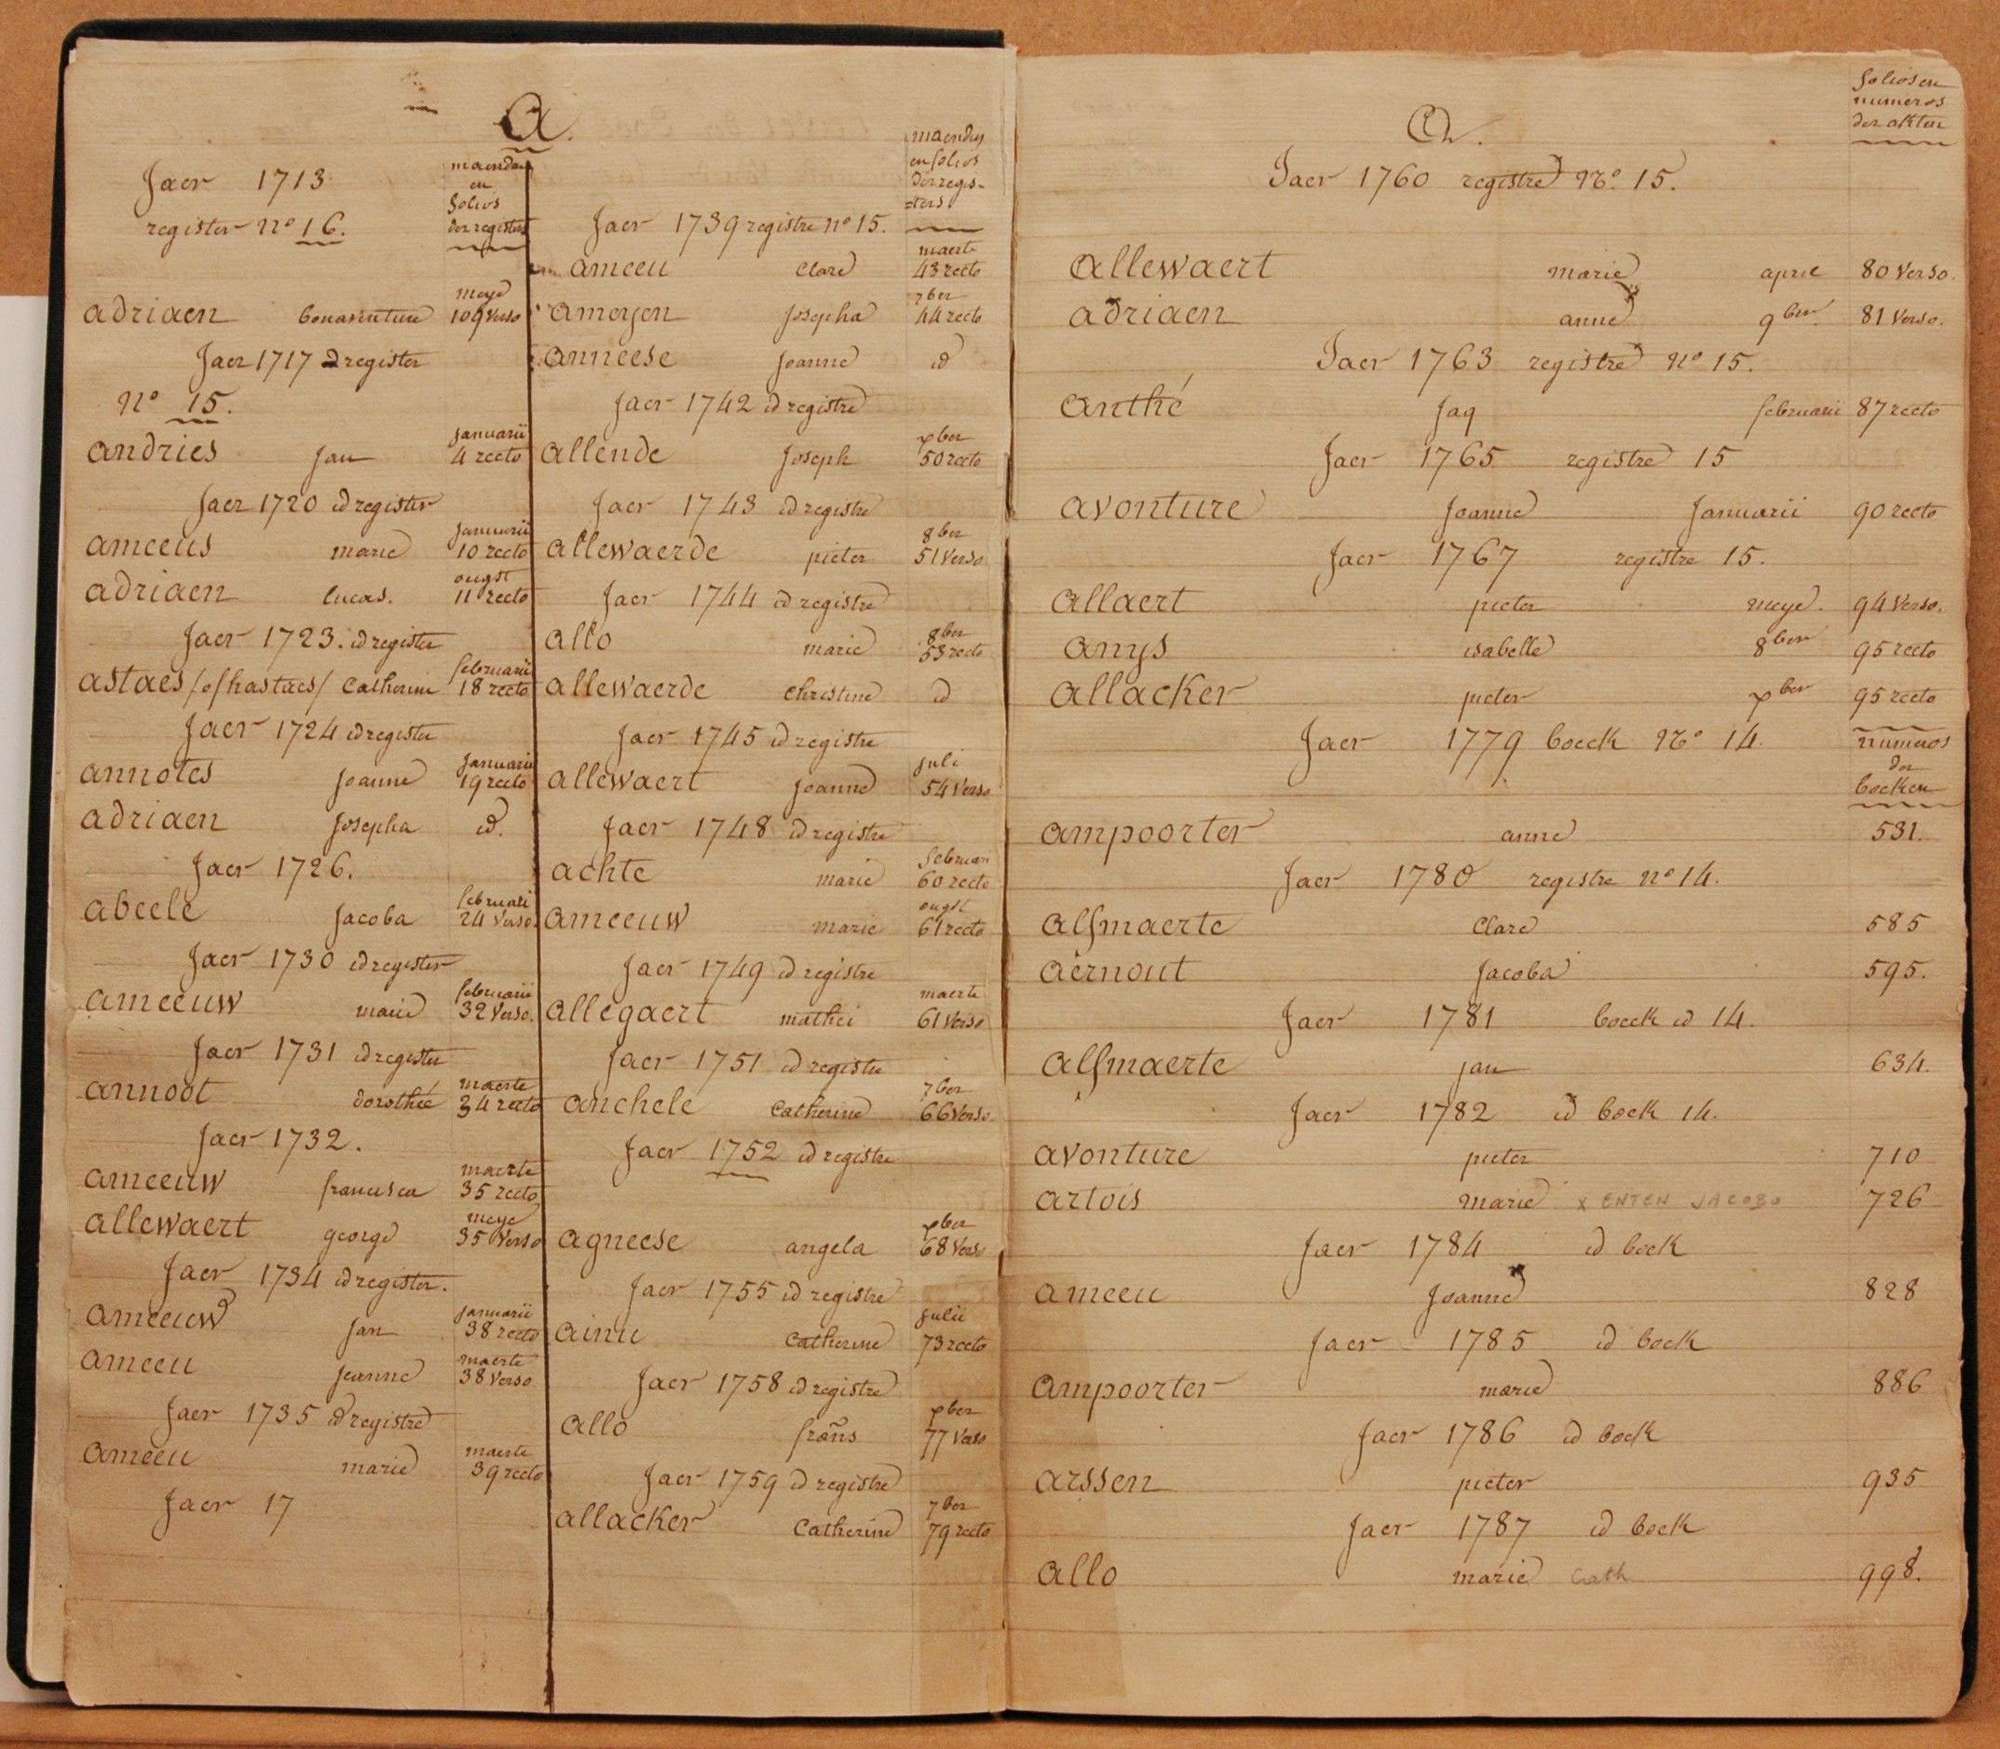 A.
Jaer 1713
maenden
en
folios
der registers
register No 16.
adriaen bonaventure meye 109 verso
Jaer 1717 id register
No 15.
andries jan januarii 4 recto
Jaer 1720 id register
ameeus marie januarii 10 recto
adriaen lucas. ougst 11 recto
Jaer 1723. id register
astaes /of hastaes/ Catherine februarii 18 recto
Jaer 1724 id register
annotes joanne januarii 19 recto
adriaen josepha id.
Jaer 1726.
abeele jacoba februari 24 verso.
Jaer 1730 id register
ameeuw marie februarii 32 verso.
Jaer 1731 id register
annoot dorothée maerte 34 recto
Jaer 1732.
ameeuw francisca maerte 35 recto
allewaert george meye 35 verso
Jaer 1734 id register.
ameeuw jan januarii 38 recto
ameeu jeanne maerte 38 verso
Jaer 1735 id registre
ameeu marie maerte 39 recto
Jaer 17
maenden
en folios
der regis-
ters
Jaer 1739 registre no 15.
ameeu clare maerte 43 recto
amoyen josepha 7ber 44 recto
anneese joanne id
Jaer 1742 id registre
allende joseph xber 50 recto
Jaer 1743 id registre
allewaerde pieter 8ber 51 verso
Jaer 1744 id registre
allo marie 8ber 53 recto
allewaerde christine id
Jaer 1745 id registre
allewaert joanne juli 54 verso
Jaer 1748 id registre
achte marie februari 60 recto
ameeuw marie ougst 61 recto
Jaer 1749 id registre
allegaert mathei maerte 61 verso
Jaer 1751 id registre
anchele catherine 7ber 66 verso.
Jaer 1752 id registre
agneese angela xber 68 verso
Jaer 1755 id registre
ainu catherine julii 73 recto
Jaer 1758 id registre
allo frans xber 77 verso
Jaer 1759 id registre
allacker catherine 7ber 79 recto
folios en
numeros
der akten
A.
Jaer 1760 registre No. 15.
allewaert marie april 80 verso.
adriaen anne 9ber. 81 verso.
Jaer 1763 registre No 15.
anthé jaq februarii 87 recto
Jaer 1765 registre 15
avonture joanne januarii 90 recto
Jaer 1767 registre 15.
allaert pieter meye. 94 verso.
anys isabelle 8ber 95 recto
allacker pieter xber 95 recto
Jaer 1779 boeck No. 14.
numeros
der
boeken
ampoorter anne 531.
Jaer 1780 registre no 14.
alsmaerte clare 585
aernout jacoba 595.
Jaer 1781 boeck id 14.
alsmaerte jan 634.
Jaer 1782 id boek 14.
avonture pieter 710
artois marie x ENTEN JACOBO 726
Jaer 1784 id boek
ameeu joanne 828
Jaer 1785 id boek
ampoorter marie 886
Jaer 1786 id boek
arssen pieter 935
Jaer 1787 id boek
allo marie Cath 998.